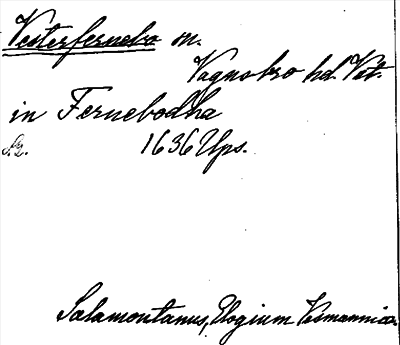 Vesterfernebo sn.
Vagnsbro hd. Vst.
in Fernebodha
1636 Ups.
Salamontanus, Elogium Vesmannica.